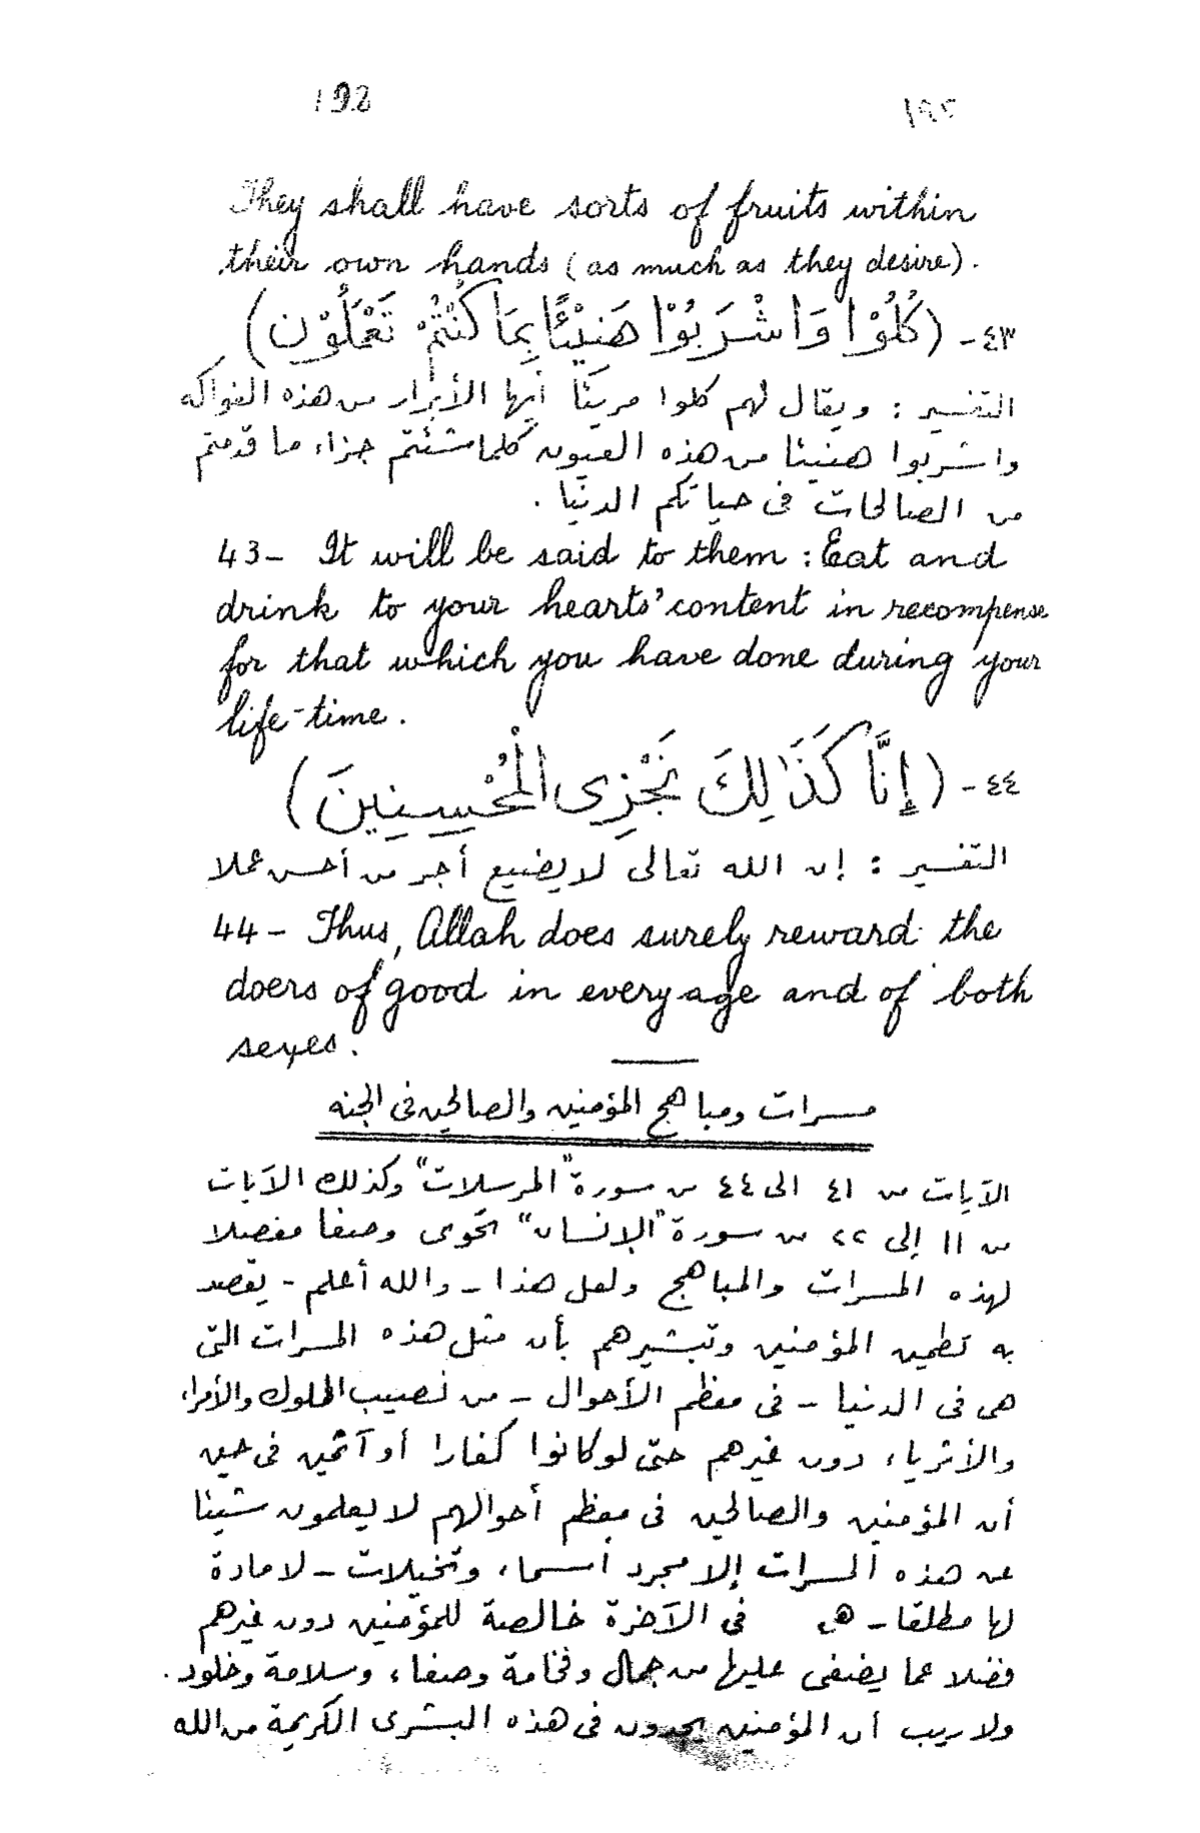 192 ١٩٢
They shall have sorts of fruits within
their own hands (as much as they desire).
٤٣- (كُلُوْا وَاشْرَبُوْا هَنِيْئًا بِمَا كُنْتُمْ تَعْمَلُوْن)
التفسير : ويقال لهم كلوا مريئا أيها الأبرار من هذه الفواكه
واشربوا هنيئا من هذه العيون كلما شئتم جزاء ما قدمتم
من الصالحات فى حياتكم الدنيا .
43- It will be said to them : Eat and
drink to your hearts' content in recompense
for that which you have done during your
life-time.
٤٤- (إِنَّا كَذَٰلِكَ نَجْزِى الْمُحْسِنِينَ)
التفسير : إن الله تعالى لا يضيع أجر من أحسن عملا
44- Thus, Allah does surely reward the
doers of good in every age and of both
sexes.
مسرات ومباهج المؤمنين والصالحين فى الجنه
الآيات من ٤١ الى ٤٤ من سورة "المرسلات" وكذلك الآيات
من ١١ إلى ٢٢ من سورة "الإنسان" تحوى وصفا مفصلا
لهذه المسرات والمباهج ولعل هذا - والله أعلم - يقصد
به تطمين المؤمنين وتبشيرهم بأن مثل هذه المسرات التى
هى فى الدنيا - فى معظم الأحوال - من نصيب الملوك والأمراء
والأثرياء دون غيرهم حتى لو كانوا كفارا أو آثمين فى حين
أن المؤمنين والصالحين فى معظم أحوالهم لا يعلمون شيئا
عن هذه المسرات إلا مجرد أسماء وتخيلات - لا مادة
لها مطلقا - هى فى الآخرة خالصة للمؤمنين دون غيرهم
فضلا عما يضفى عليها من جمال وفخامة وصفاء وسلامة وخلود .
ولا ريب أن المؤمنين يجدون فى هذه البشرى الكريمة من الله